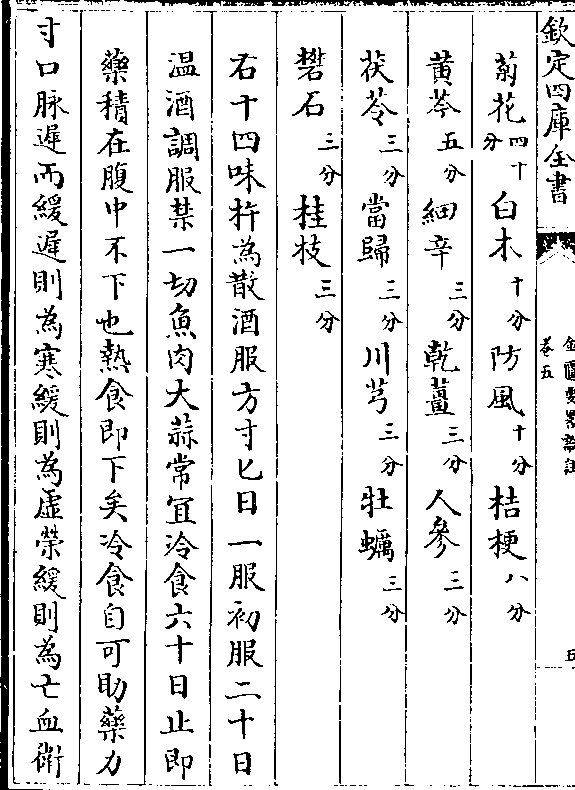 欽定四庫全書
金匱要畧論註
卷五
五
菊花四十分 白木十分 防風十分 桔梗八分
黄芩五分 細辛三分 乾薑三分 人參三分
茯苓三分 當歸三分 川芎三分 牡蠣三分
礬石三分 桂枝三分
右十四味杵為散酒服方寸匕日一服初服二十日
温酒調服禁一切魚肉大蒜常宜冷食六十日止即
藥積在腹中不下也熱食即下矣冷食自可助藥力
寸口脉遲而緩遲則為寒緩則為虛榮緩則為亡血衛